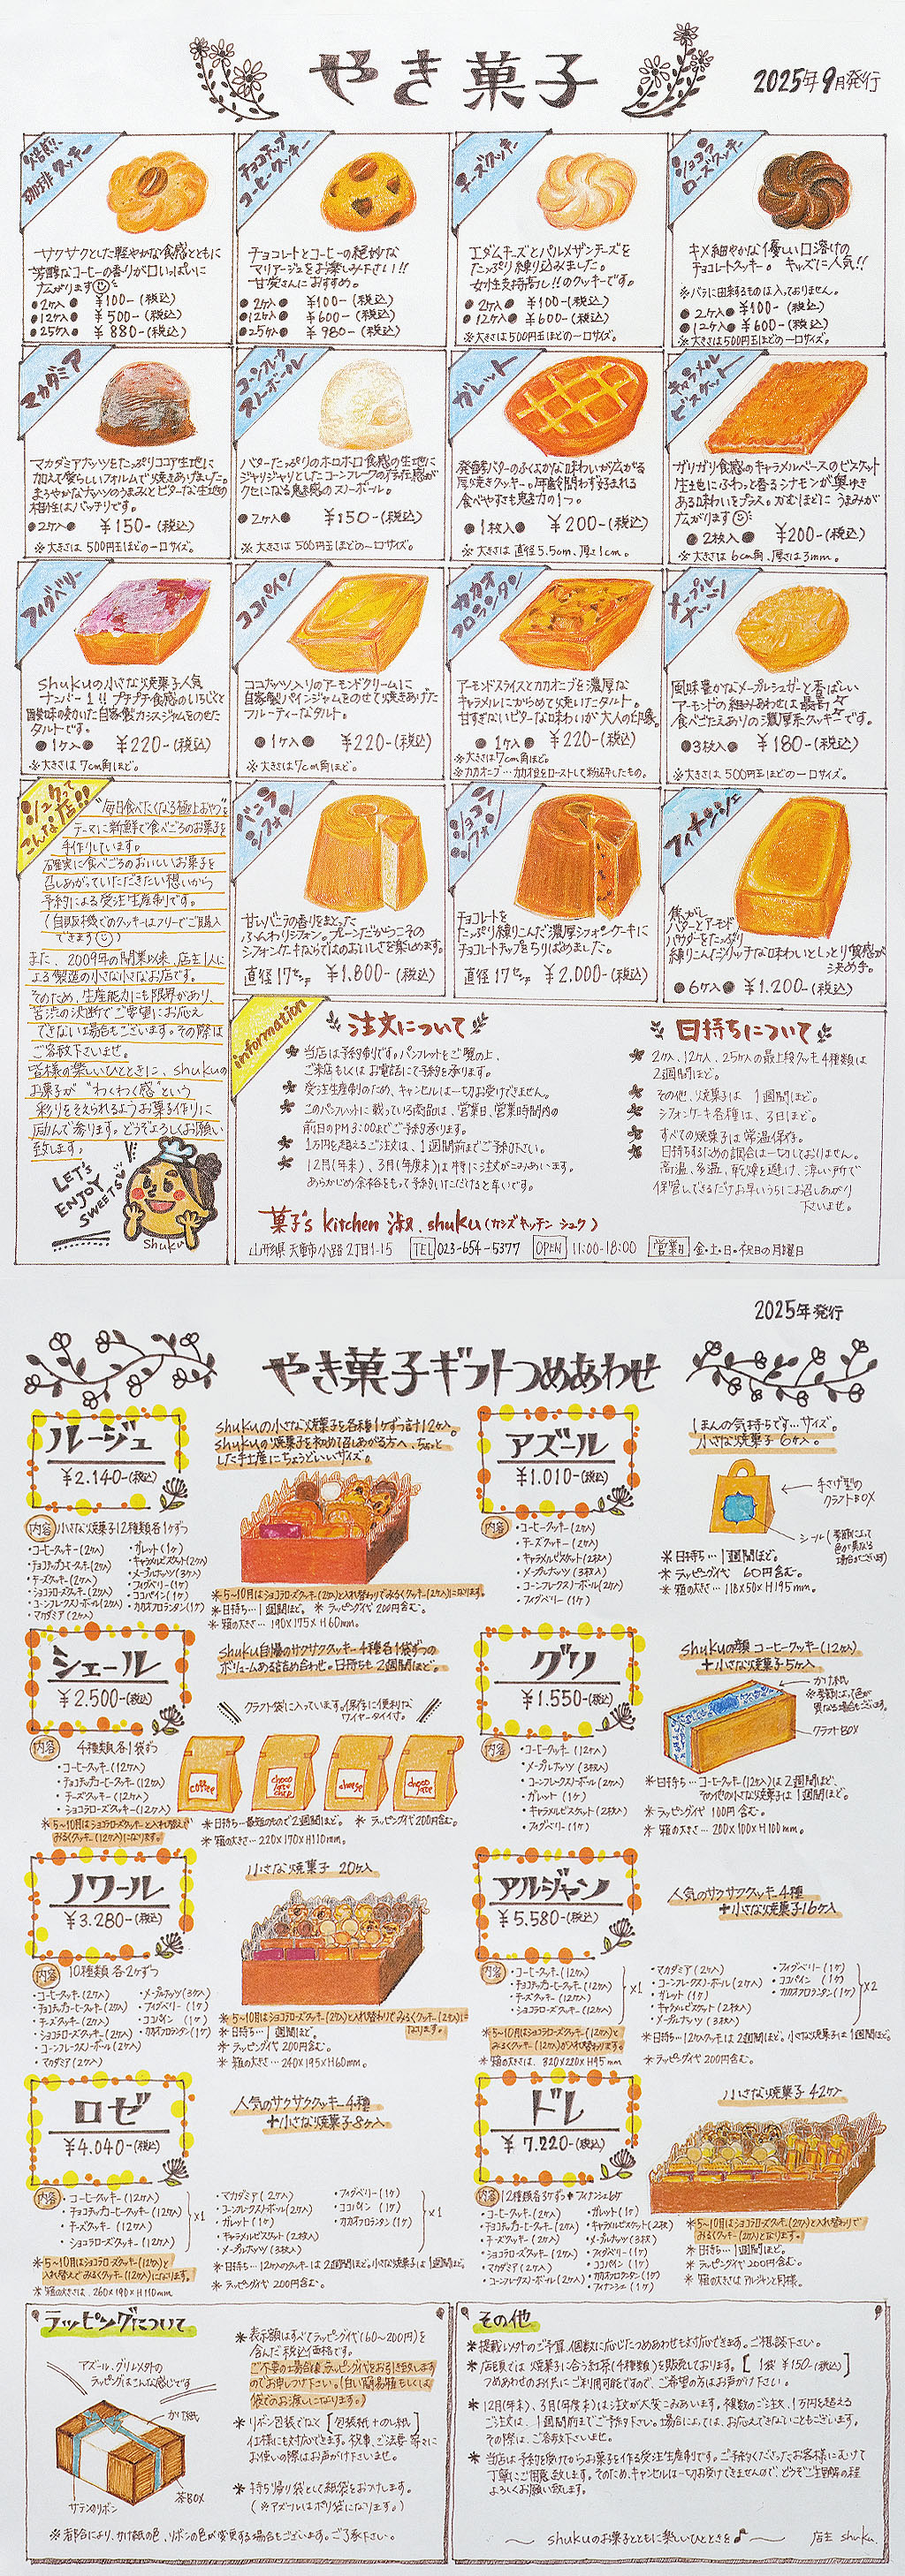 やき菓子
2025年9月発行
焙煎珈琲クッキー
サクサクとした軽やかな食感とともに
芳醇なコーヒーの香りが口いっぱいに
広がります
●2ケ入● ¥100-(税込)
●12ケ入● ¥500-(税込)
●25ケ入● ¥880-(税込)
チョコチップコーヒークッキー
チョコレートとコーヒーの絶妙な
マリアージュをお楽しみ下さい!!
甘党さんにおすすめ。
●2ケ入● ¥100-(税込)
●12ケ入● ¥600-(税込)
●25ケ入● ¥980-(税込)
チーズクッキー
エダムチーズとパルメザンチーズを
たっぷり練り込みました。
女性支持高し!!のクッキーです。
●2ケ入● ¥100-(税込)
●12ケ入● ¥600-(税込)
※大きさは500円玉ほどの一口サイズ。
ショコラローズクッキー
キメ細やかな優しい口溶けの
チョコレートクッキー。キッズに人気!!
※バラに由来するものは入っておりません。
●2ケ入● ¥100-(税込)
●12ケ入● ¥600-(税込)
※大きさは500円玉ほどの一口サイズ。
マカダミア
マカダミアナッツをたっぷりココア生地に
加えて愛らしいフォルムで焼きあげました。
まろやかなナッツのうまみとビターな生地の
相性はバッチリです。
●2ケ入● ¥150-(税込)
※大きさは500円玉ほどの一口サイズ。
コーンフレークスノーボール
バターたっぷりのホロホロ食感の生地に
ジャリジャリとしたコーンフレークの存在感が
クセになる魅惑のスノーボール。
●2ケ入● ¥150-(税込)
※大きさは500円玉ほどの一口サイズ。
ガレット
発酵バターのふくよかな味わいが広がる
厚焼きクッキー。年齢を問わず好まれる
食べやすさも魅力の1つ。
●1枚入● ¥200-(税込)
※大きさは直径5.5cm、厚さ1cm。
キャラメルビスケット
ガリガリ食感のキャラメルベースのビスケット
生地にふわっと香るシナモンが奥ゆき
ある味わいをプラス。かむほどにうまみが
広がります
●2枚入● ¥200-(税込)
※大きさは6cm角、厚さは3mm。
フィグベリー
shukuの小さな焼菓子人気
ナンバー1!!プチプチ食感のいちじくと
酸味の効いた自家製カシスジャムをのせた
タルトです。
●1ケ入● ¥220-(税込)
※大きさは7cm角ほど。
ココパイン
ココナッツ入りのアーモンドクリームに
自家製パインジャムをのせて焼きあげた
フルーティーなタルト。
●1ケ入● ¥220-(税込)
※大きさは7cm角ほど。
カカオフロランタン
アーモンドスライスとカカオニブを濃厚な
キャラメルにからめて焼いたタルト。
甘すぎないビターな味わいが大人の印象。
●1ケ入● ¥220-(税込)
※大きさは7cm角ほど。
※カカオニブ…カカオ豆をローストして粉砕したもの。
メープルナッツ
風味豊かなメープルシュガーと香ばしい
アーモンドの組みあわせは最高!!
食べごたえありの濃厚系クッキーです。
●3枚入● ¥180-(税込)
※大きさは500円玉ほどの一口サイズ。
シュクってこんな店!!
"毎日食べたくなる極上おやつ"を
テーマに新鮮で食べごろのお菓子を
手作りしています。
確実に食べごろのおいしいお菓子を
召しあがっていただきたい想いから
予約による受注生産制です。
(自販機でのクッキーはフリーでご購入
できます)
また、2009年の開業以来、店主1人に
よる製造の小さな小さなお店です。
そのため、生産能力にも限界があり、
苦渋の決断でご要望にお応え
できない場合もございます。その際は
ご容赦下さいませ。
皆様の楽しいひとときに、shukuの
お菓子が"わくわく感"という
彩りをそえられるようお菓子作りに
励んで参ります。どうぞよろしくお願い
致します。
LET'S
ENJOY
SWEETS
shuku
バニラシフォン
甘いバニラの香りをまとった
ふんわりシフォン。プレーンだからこその
シフォンケーキならではのおいしさを楽しめます。
直径17センチ ¥1.800-(税込)
ショコラシフォン
チョコレートを
たっぷり練りこんだ濃厚シフォンケーキに
チョコレートチップをちりばめました。
直径17センチ ¥2.000-(税込)
フィナンシェ
焦がし
バターとアーモンド
パウダーをたっぷり
練りこんだリッチな味わいとしっとり質感が
決め手。
●6ケ入● ¥1.200-(税込)
information
注文について
当店は予約制です。パンフレットをご覧の上、
ご来店もしくはお電話にて予約を承ります。
受注生産制のため、キャンセルは一切お受けできません。
このパンフレットに載っている商品は、営業日、営業時間内の
前日のPM3:00までご予約承ります。
1万円を超えるご注文は、1週間前までご予約下さい。
12月(年末)、3月(年度末)は特に注文がこみあいます。
あらかじめ余裕をもって予約いただけると幸いです。
日持ちについて
2ケ入、12ケ入、25ケ入の最上段クッキー4種類は
2週間ほど。
その他、焼菓子は1週間ほど。
シフォンケーキ各種は、3日ほど。
すべての焼菓子は常温保存。
日持ちするための調合は一切しておりません。
高温、多湿、乾燥を避け、涼しい所で
保管し、できるだけお早いうちにお召しあがり
下さいませ。
菓子's kitchen 淑. shuku (カシズキッチン シュク)
山形県天童市小路2丁目1-15 TEL 023-654-5377 OPEN 11:00-18:00 営業日 金・土・日・祝日の月曜日
2025年発行
やき菓子ギフトつめあわせ
ルージュ
¥2.140-(税込)
shukuの小さな焼菓子を各種1ケずつ計12ケ入。
shukuの焼菓子を初めて召しあがる方へ、ちょっと
した手土産にちょうどいいサイズ。
内容 小さな焼菓子12種類各1ケずつ
・コーヒークッキー(2ケ入)
・チョコチップコーヒークッキー(2ケ入)
・チーズクッキー(2ケ入)
・ショコラローズクッキー(2ケ入)
・コーンフレークスノーボール(2ケ入)
・マカダミア(2ケ入)
・ガレット(1ケ)
・キャラメルビスケット(2ケ入)
・メープルナッツ(3ケ入)
・フィグベリー(1ケ)
・ココパイン(1ケ)
・カカオフロランタン(1ケ)
※5~10月はショコラローズクッキー(2ケ入)と入れ替わりでみるくクッキー(2ケ入)になります。
※日持ち…1週間ほど。 ※ラッピング代200円含む。
※箱の大きさ…190×175×H60mm。
アズール
¥1.010-(税込)
ほんの気持ちです…サイズ。
小さな焼菓子6ケ入。
内容
・コーヒークッキー(2ケ入)
・チーズクッキー(2ケ入)
・キャラメルビスケット(2枚入)
・メープルナッツ(3枚入)
・コーンフレークスノーボール(2ケ入)
・フィグベリー(1ケ)
手さげ型の
クラフトBOX
シール(季節によって
色が異なる
場合がございます)
※日持ち…1週間ほど。
※ラッピング代 60円含む。
※箱の大きさ…118×50×H195mm。
シェール
¥2.500-(税込)
shuku自慢のサクサククッキー4種各1袋ずつの
ボリュームある詰め合わせ。日持ちも2週間ほど。
クラフト袋に入っています。保存に便利な
ワイヤータイ付。
内容 4種類各1袋ずつ
・コーヒークッキー(12ケ入)
・チョコチップコーヒークッキー(12ケ入)
・チーズクッキー(12ケ入)
・ショコラローズクッキー(12ケ入)
coffee
choco late chip
cheese
choco late
※5~10月はショコラローズクッキーと入れ替えで
みるくクッキー(12ケ入)になります。
※日持ち…最短のもので2週間ほど。 ※ラッピング代200円含む。
※箱の大きさ…220×170×H110mm。
グリ
¥1.550-(税込)
shukuの顔 コーヒークッキー(12ケ入)
+小さな焼菓子5ケ入
内容
・コーヒークッキー(12ケ入)
・メープルナッツ(3枚入)
・コーンフレークスノーボール(2ケ入)
・ガレット(1ケ)
・キャラメルビスケット(2枚入)
・フィグベリー(1ケ)
かけ紙
※季節によって色が
異なる場合もございます。
クラフトBOX
※日持ち…コーヒークッキー(12ケ入)は2週間ほど、
その他の小さな焼菓子は1週間ほど。
※ラッピング代 100円含む。
※箱の大きさ…200×100×H100mm。
ノワール
¥3.280-(税込)
小さな焼菓子 20ケ入
内容 10種類各2ケずつ
・コーヒークッキー(2ケ入)
・チョコチップコーヒークッキー(2ケ入)
・チーズクッキー(2ケ入)
・ショコラローズクッキー(2ケ入)
・コーンフレークスノーボール(2ケ入)
・マカダミア(2ケ入)
・メープルナッツ(3ケ入)
・フィグベリー(1ケ)
・ココパイン(1ケ)
・カカオフロランタン(1ケ)
※5~10月はショコラローズクッキー(2ケ入)と入れ替わりでみるくクッキー(2ケ入)に
なります。
※日持ち…1週間ほど。
※ラッピング代200円含む。
※箱の大きさ…240×195×H60mm。
アルジャン
¥5.580-(税込)
人気のサクサククッキー4種
+小さな焼菓子16ケ入
内容
・コーヒークッキー(12ケ入)
・チョコチップコーヒークッキー(12ケ入)
・チーズクッキー(12ケ入)
・ショコラローズクッキー(12ケ入)
×1
・マカダミア(2ケ入)
・コーンフレークスノーボール(2ケ入)
・ガレット(1ケ)
・キャラメルビスケット(2枚入)
・メープルナッツ(3枚入)
・フィグベリー(1ケ)
・ココパイン(1ケ)
・カカオフロランタン(1ケ)
×2
※5~10月はショコラローズクッキー(12ケ入)と
みるくクッキー(12ケ入)が入れ替わります。
※箱の大きさは、320×220×H95mm
※日持ち…12ケ入クッキーは2週間ほど、小さな焼菓子は1週間ほど。
※ラッピング代200円含む。
ロゼ
¥4.040-(税込)
人気のサクサククッキー4種
+小さな焼菓子8ケ入
内容
・コーヒークッキー(12ケ入)
・チョコチップコーヒークッキー(12ケ入)
・チーズクッキー(12ケ入)
・ショコラローズクッキー(12ケ入)
×1
・マカダミア(2ケ入)
・コーンフレークスノーボール(2ケ入)
・ガレット(1ケ)
・キャラメルビスケット(2枚入)
・メープルナッツ(3枚入)
・フィグベリー(1ケ)
・ココパイン(1ケ)
・カカオフロランタン(1ケ)
×1
※5~10月はショコラローズクッキー(12ケ入)と
入れ替えでみるくクッキー(12ケ入)になります。
※箱の大きさは、260×190×H110mm
※日持ち…12ケ入のクッキーは2週間ほど、小さな焼菓子は1週間ほど。
※ラッピング代200円含む。
ドレ
¥7.220-(税込)
小さな焼菓子42ケ入
内容 12種類各3ケずつ+フィナンシェ6ケ
・コーヒークッキー(2ケ入)
・チョコチップコーヒークッキー(2ケ入)
・チーズクッキー(2ケ入)
・ショコラローズクッキー(2ケ入)
・マカダミア(2ケ入)
・コーンフレークスノーボール(2ケ入)
・ガレット(1ケ)
・キャラメルビスケット(2枚)
・メープルナッツ(3枚)
・フィグベリー(1ケ)
・ココパイン(1ケ)
・カカオフロランタン(1ケ)
・フィナンシェ(1ケ)
※5~10月はショコラローズクッキー(2ケ入)と入れ替わりで
みるくクッキー(2ケ入)となります。
※日持ち…1週間ほど。
※ラッピング代200円含む。
※箱の大きさはアルジャンと同様。
ラッピングについて
アズール、グリ以外の
ラッピングはこんな感じです
かけ紙
サテンのリボン
茶BOX
※表示額はすべてラッピング代(60~200円)を
含んだ税込価格です。
ご不要の場合はラッピング代をお引き致します
のでお申しつけ下さい。(白い簡易箱もしくは
袋でのお渡しになります。)
※リボン包装でなく[包装紙+のし紙]
仕様にも対応できます。祝事、ご法要等々に
お使いの際はお声がけ下さいませ。
※持ち帰り袋として紙袋をおつけします。
(※アズールはポリ袋になります。)
※都合により、かけ紙の色、リボンの色が変更する場合もございます。ご了承下さい。
その他
※掲載以外のご予算、個数に応じたつめあわせも対応できます。ご相談下さい。
※店頭では焼菓子に合う紅茶(4種類)を販売しております。[1袋 ¥150-(税込)]
つめあわせのお供にご利用可能ですので、ご希望の方はお声がけ下さい。
※12月(年末)、3月(年度末)は注文が大変こみあいます。複数のご注文、1万円を超える
ご注文は、1週間前までご予約下さい。場合によっては、お応えできないこともございます。
その際は、ご容赦下さいませ。
※当店は予約を受けてからお菓子を作る受注生産制です。ご予約くださったお客様にむけて
丁寧にご用意致します。そのため、キャンセルは一切お受けできませんので、どうぞご理解の程
よろしくお願い致します。
~shukuのお菓子とともに楽しいひとときを♪~ 店主 shuku.